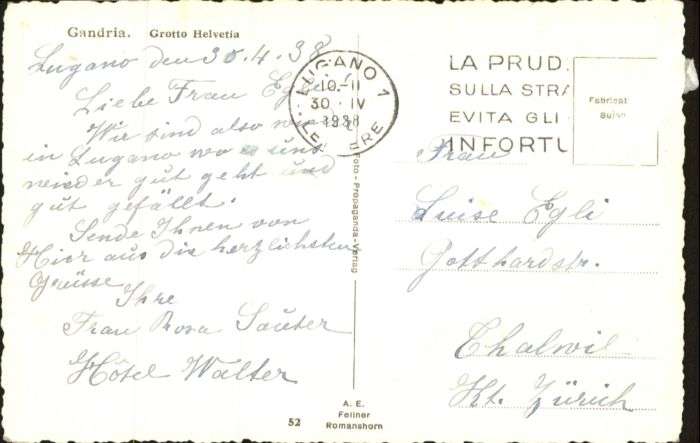 Gandria. Grotto Helvetia
Lugano den 30.4.38
Liebe Frau Egli!
Wir sind also
in Lugano wo es uns
wieder gut geht und
gut gefällt.
Sende Ihnen von
Hier aus die herzlichsten
Grüsse
Ihre
Frau Rosa Sauter
Hôtel Walter
LUGANO 1
10.-11
30. IV
1938
LA PRUD.
SULLA STRA
EVITA GLI
INFORTU
Fabricat
Suisse
Foto-Propaganda-Verlag
Frau
Luise Egli
Gotthardstr.
Thalwil
Kt. Zürich
52
A. E.
Fellner
Romanshorn